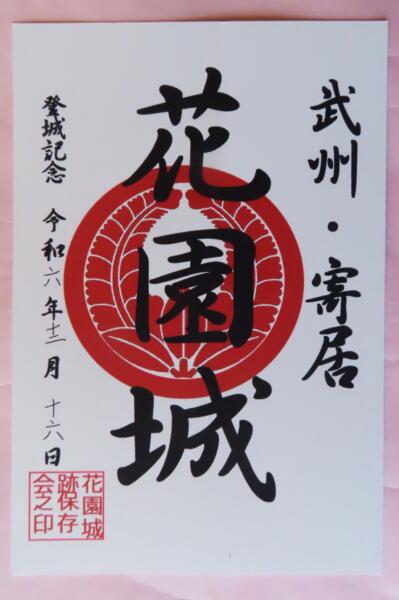 武州・寄居
花園城
登城記念 令和六年十二月十六日
花園城
跡保存
会之印